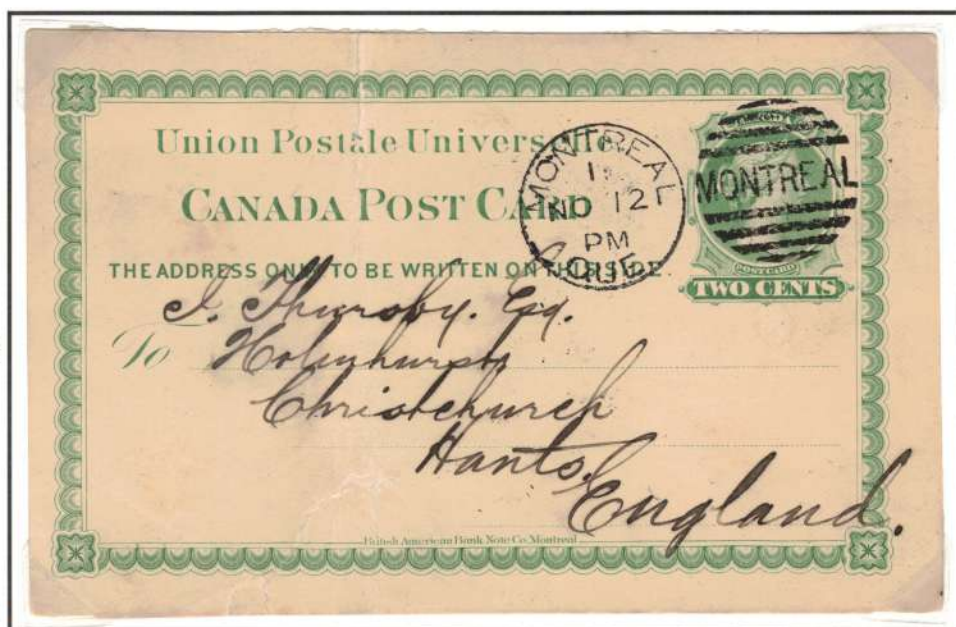 Union Postale Universelle
CANADA POST CARD
THE ADDRESS ONLY TO BE WRITTEN ON THIS SIDE.
MONTREAL
1
NO 12
PM
QUE
MONTREAL
POST CARD
TWO CENTS
To
J. Thursby. Esq.
Holmhurst
Christchurch
Hants.
England.
British American Bank Note Co. Montreal